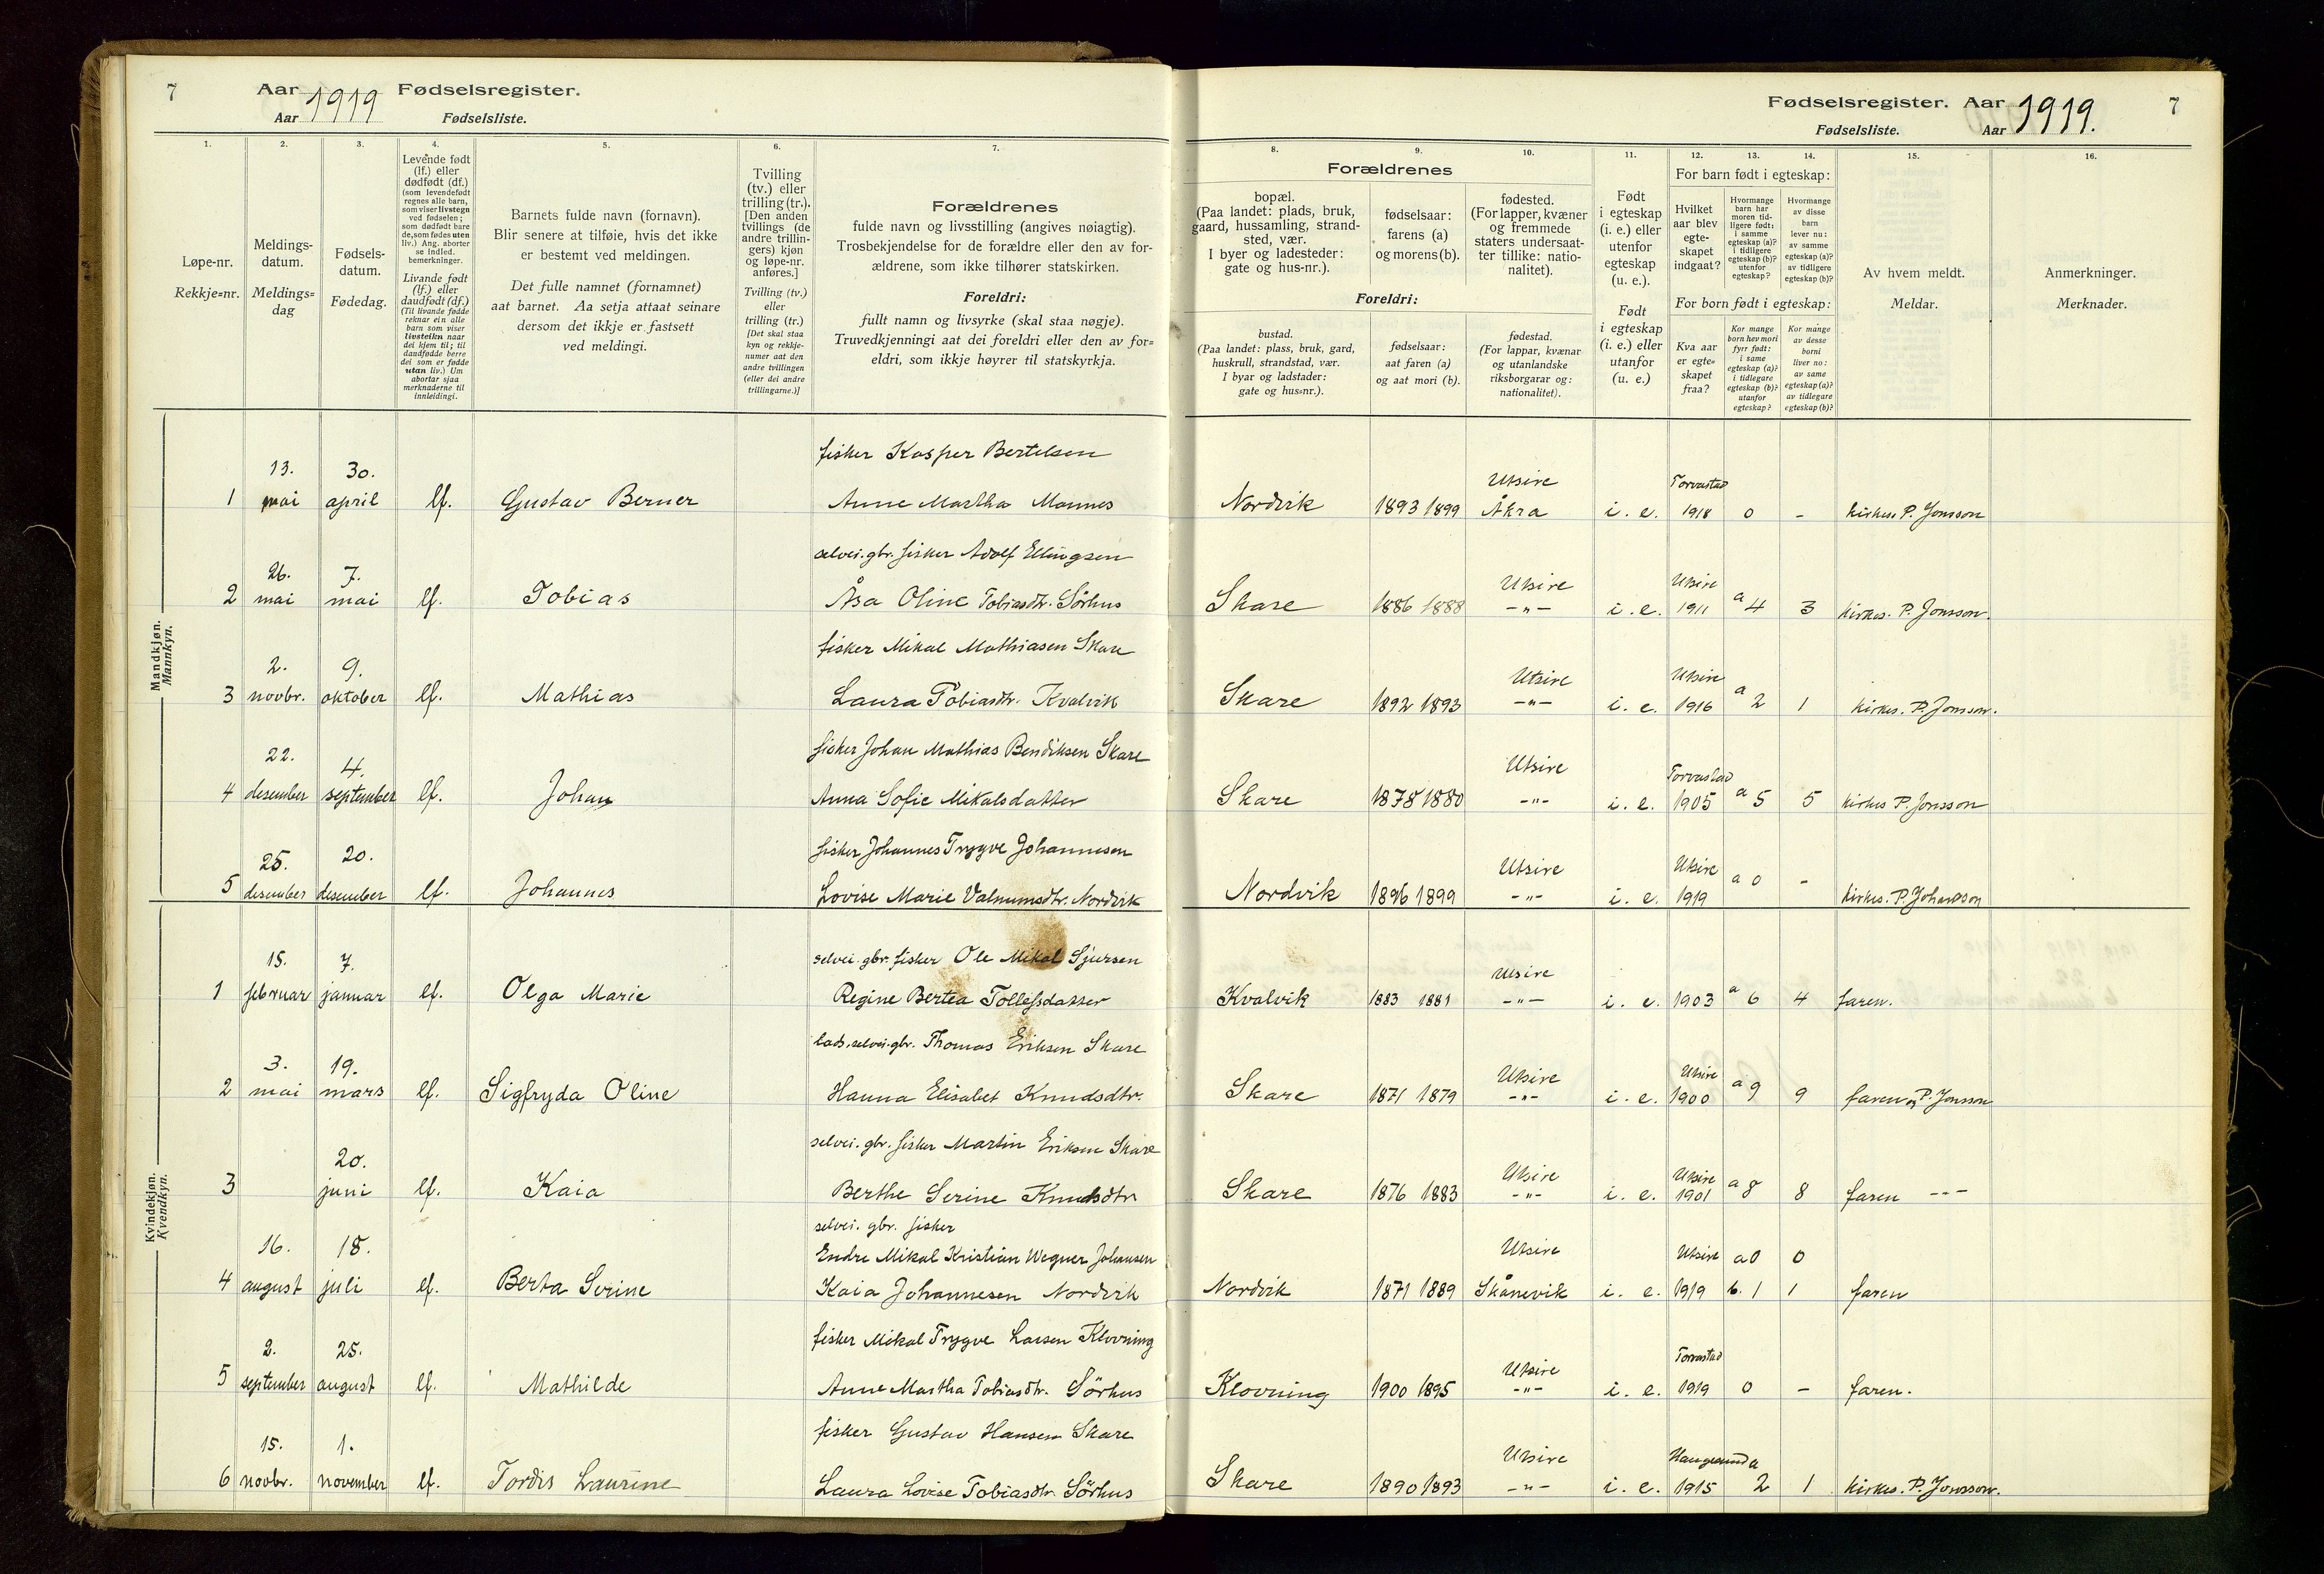 7 Aar 1919 Fødselsregister.
Aar Fødselsliste.
Fødselsregister. Aar 1919. 7
Fødselsliste. Aar
1. 2. 3. 4. 5. 6. 7.
8. 9. 10. 11. 12. 13. 14. 15. 16.
Løpe-nr.
Rekkje=nr.
Meldings-
datum.
Meldings=
dag
Fødsels-
datum.
Fødedag.
Levende født
(lf.) eller
dødfødt (df.)
(som levendefødt
regnes alle barn,
som viser livstegn
ved fødselen;
som dødfødt bare
de, som fødes uten
liv.) Ang. aborter
se indled.
bemerkninger.
Livande født
(lf.) eller
daudfødt (df.)
(Til livande fødde
reknar ein alle
barn som viser
livsteikn naar
dei kjem til; til
daudfødde berre
dei som er fødde
utan liv.) Um
abortar sjaa
merknaderne til
innleidingi.
Barnets fulde navn (fornavn).
Blir senere at tilføie, hvis det ikke
er bestemt ved meldingen.
Det fulle namnet (fornamnet)
aat barnet. Aa setja attaat seinare
dersom det ikkje er fastsett
ved meldingi.
Tvilling
(tv.) eller
trilling (tr.).
[Den anden
tvillings (de
andre trillin-
gers) kjøn
og løpe-nr.
anføres.]
Tvilling (tv.)
eller
trilling (tr.)
[Det skal staa
kyn og rekkje-
numer aat den
andre tvillingen
(eller dei andre
trillingarne.)]
Forældrenes
fulde navn og livsstilling (angives nøiagtig).
Trosbekjendelse for de forældre eller den av for-
ældrene, som ikke tilhører statskirken.
Foreldri:
fullt namn og livsyrke (skal staa nøgje).
Truvedkjenningi aat dei foreldri eller den av for=
eldri, som ikkje høyrer til statskyrkja.
Forældrenes
bopæl.
(Paa landet: plads, bruk,
gaard, hussamling, strand-
sted, vær.
I byer og ladesteder:
gate og hus-nr.).
fødselsaar:
farens (a)
og morens (b).
fødested.
(For lapper, kvæner
og fremmede
staters undersaat-
ter tillike: natio-
nalitet).
Foreldri:
bustad.
(Paa landet: plass, bruk, gard,
huskrull, strandstad, vær.
I byar og ladstader:
gate og hus=nr.).
fødselsaar:
aat faren (a)
og aat mori (b).
fødestad.
(For lappar, kvænar
og utanlandske
riksborgarar og:
nationalitet).
Født
i egteskap
(i. e.) eller
utenfor
egteskap
(u. e.).
Født
i egteskap
(i. e.) eller
utanfor
(u. e.).
For barn født i egteskap:
Hvilket
aar blev
egte-
skapet
indgaat?
Hvormange
barn har
moren tid-
ligere født:
i samme
egteskap (a)?
i tidligere
egteskap (b)?
utenfor
egteskap?
Hvormange
av disse
barn
lever nu:
av samme
egteskap (a)?
av tidligere
egteskap (b)?
For born født i egteskap:
Kva aar
er egte=
skapet
fraa?
Kor mange
born hev mori
fyrr født:
i same
egteskap (a)?
i tidlegare
egteskap (b)?
utanfor
egteskap?
Kor mange
av desse
borni
liver no:
av same
egteskap (a)?
av tidlegare
egteskap (b)?
Av hvem meldt.
Meldar.
Anmerkninger.
Merknader.
Mandkjøn.
Mannkyn.
fisker Kasper Bertelsen
13. 30. Utsire Torvastad
1 mai april lf. Gustav Berner Anne Martha Mannes Nordvik 1893 1899 Åkra i. e. 1918 0 - kirkes. P. Jonsson
selvei. gbr. fisker Adolf Ellingsen
26. 7. Utsire Utsire
2 mai mai lf. Tobias Åsa Oline Tobiasdtr. Sörhus Skare 1886 1888 -"- i. e. 1911 a 4 3 kirkes. P. Jonsson.
fisker Mikal Mathiasen Skare
2. 9. Utsire Utsire
3 novbr. oktober lf. Mathias Laura Tobiasdtr. Kvalvik Skare 1892 1893 -"- i. e. 1916 a 2 1 kirkes. P. Jonsson.
fisker Johan Mathias Bendiksen Skare
22. 4. Utsire Torvastad
4 desember september lf. Johan Anna Sofie Mikalsdatter Skare 1878 1880 -"- i. e. 1905 a 5 5 kirkes P. Jonsson
fisker Johannes Trygve Johannesen
25. 20. Utsire Utsire
5 desember desember lf. Johannes Lovise Marie Valnumsdtr. Nordvik Nordvik 1896 1899 -"- i. e. 1919 a 0 - kirkes. P.
Kvindekjøn.
Kvendkyn.
selvei. gbr. fisker Ole Mikal Sjursen
15. 7. Utsire
1 februar januar lf. Olga Marie Regine Bertea Tollefsdatter Kvalvik 1883 1881 -"- i. e. 1903 a 6 4 faren.
selvei. gbr. Thomas Eriksen Skare
3. 19. Utsire Utsire
2 mai mars lf. Sigfryda Oline Hanna Elisabet Knudsdtr. Skare 1871 1879 -"- i. e. 1900 a 9 9 faren og P. Jonsson
selvei. gbr. fisker Martin Eriksen Skare
20. Utsire Utsire
3 juni lf. Kaia Berthe Serine Knudsdtr Skare 1876 1883 -"- i. e. 1901 a 8 8 faren -"-
selvei. gbr. fisker
16. 18. Endre Mikal Kristian Wegner Johansen Utsire Utsire a 0 0
4 august juli lf. Berta Serine Kaia Johannesen Nordvik Nordvik 1871 1889 Skånevik i. e. 1919 b. 1 1 faren
fisker Mikal Trygve Larsen Klovning
2. 25. Utsire Torvastad
5 september august lf. Mathilde Anne Martha Tobiasdtr. Sörhus Klovning 1900 1895 -"- i. e. 1919 0 - faren.
fisker Gustav Hansen Skare
15. 1. Utsire Haugesund a
6 novbr. november lf. Tordis Laurine Laura Lovise Tobiasdtr. Sörhus Skare 1890 1893 -"- i. e. 1915 2 1 kirkes. P. Jonsson.